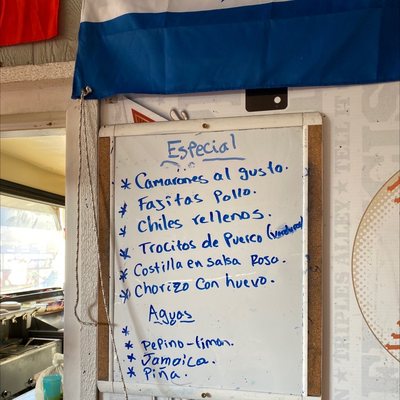 Especial
* Camarones al gusto.
* Fajitas Pollo.
* Chiles rellenos.
* Trocitos de Puerco (Verdura)
* Costilla en salsa Rosa.
* Chorizo con huevo.
Aguas
*
* Pepino-limon.
* Jamaica.
* Piña.